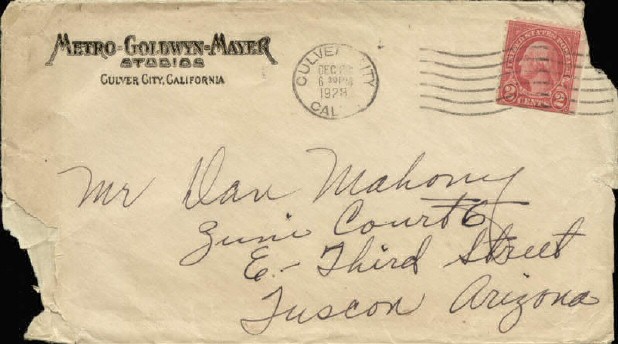 METRO-GOLDWYN-MAYER
STUDIOS
CULVER CITY, CALIFORNIA
CULVER CITY
DEC
6 PM
1928
CAL.
UNITED STATES POSTAGE
2 CENTS 2
Mr Dan Mahony
Zuni Court 6
E- Third Street
Tuscon Arizona